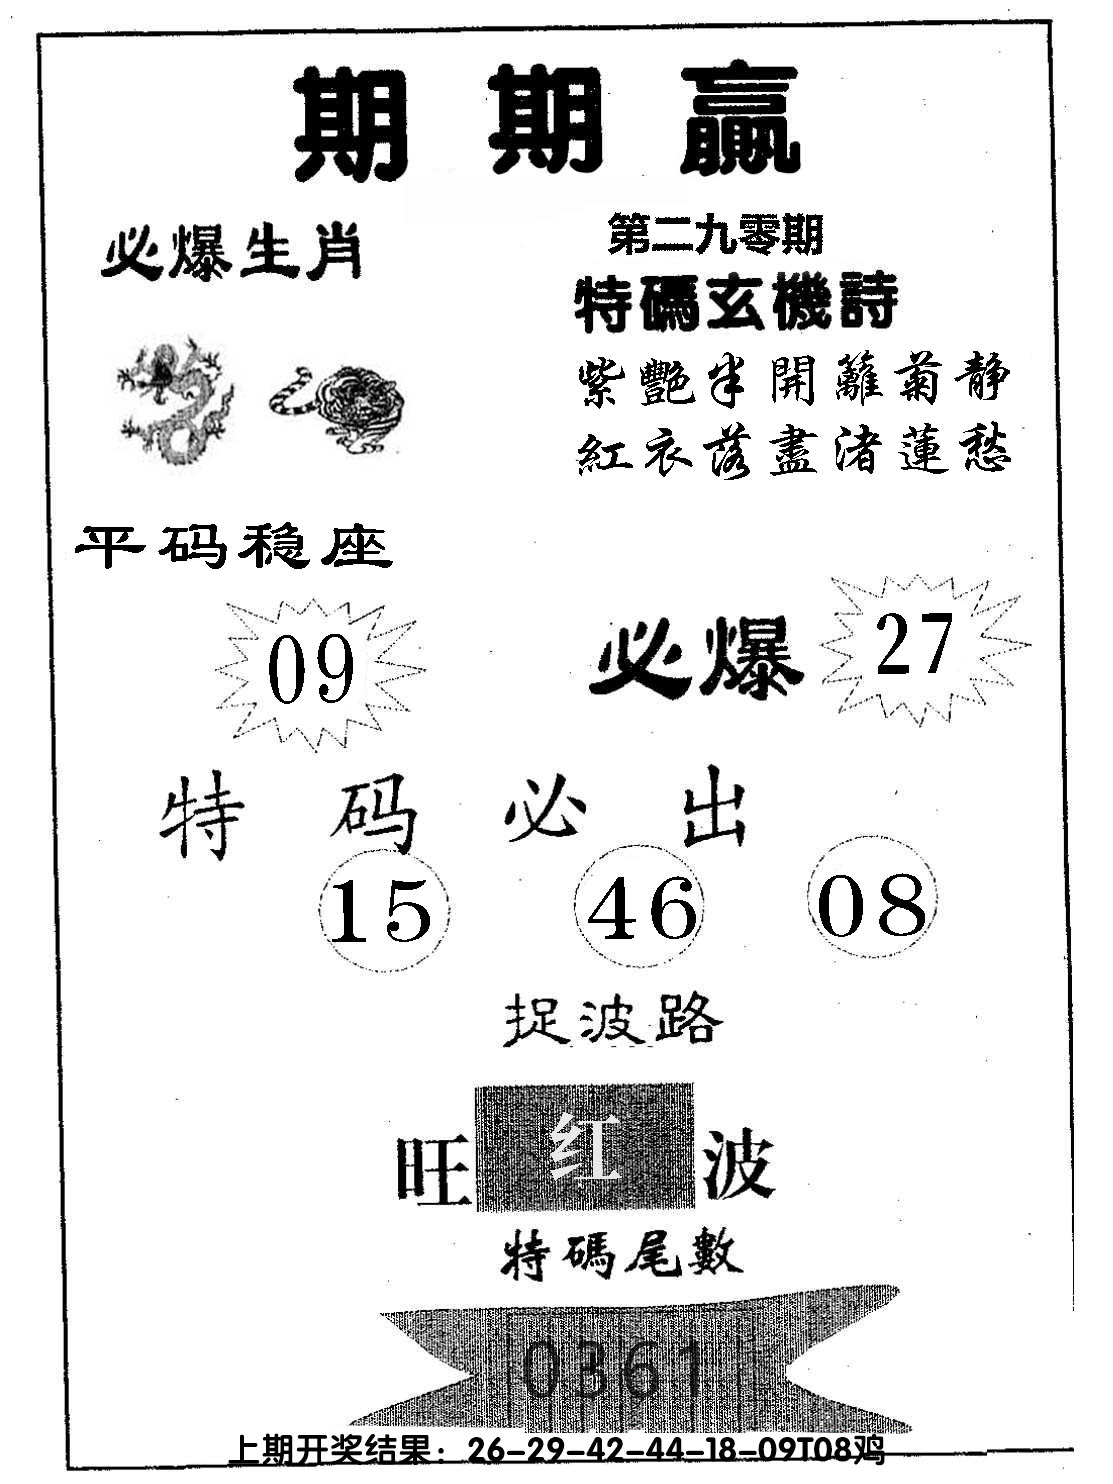 期期赢
必爆生肖
第二九零期
特碼玄機詩
紫艷半開籬菊静
紅衣落盡渚蓮愁
平码稳座
09
必爆 27
特码必出
15 46 08
捉波路
旺 红 波
特碼尾數
0361
上期开奖结果：26-29-42-44-18-09T08鸡